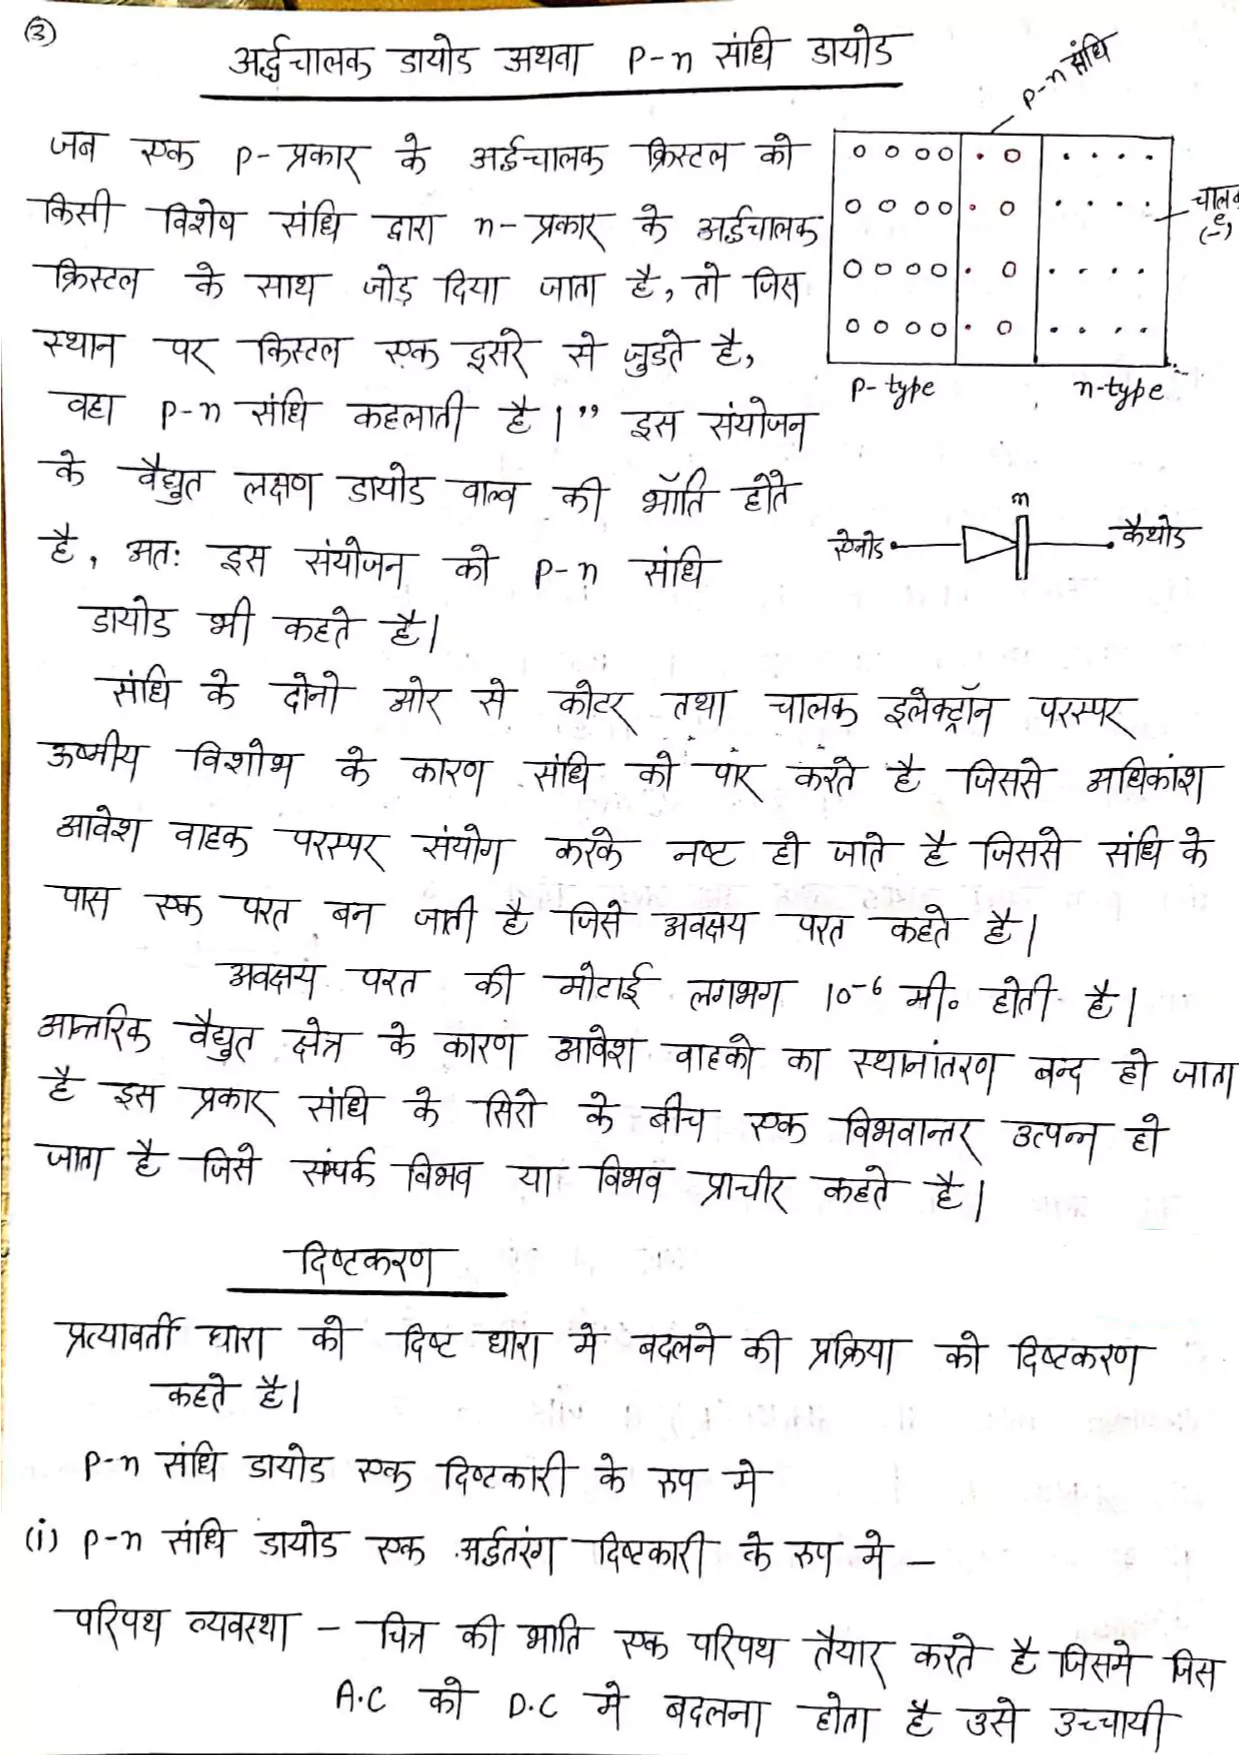 (3)
अर्द्धचालक डायोड अथवा P-n संधि डायोड
P-n संधि
जब एक P- प्रकार के अर्द्धचालक क्रिस्टल को
किसी विशेष संधि द्वारा n- प्रकार के अर्द्धचालक
क्रिस्टल के साथ जोड़ दिया जाता है, तो जिस
स्थान पर क्रिस्टल एक दूसरे से जुडते है,
वहा P-n संधि कहलाती है।" इस संयोजन
के वैद्युत लक्षण डायोड वाल्व की भाँति होते
है, अत: इस संयोजन को P-n संधि
डायोड भी कहते है।
चालक
e
(-)
P-type
n-type
n
ऐनोड
कैथोड
संधि के दोनो ओर से कोटर तथा चालक इलेक्ट्रॉन परस्पर
ऊष्मीय विक्षोभ के कारण संधि को पार करते है जिससे अधिकांश
आवेश वाहक परस्पर संयोग करके नष्ट हो जाते है जिससे संधि के
पास एक परत बन जाती है जिसे अवक्षय परत कहते है।
अवक्षय परत की मोटाई लगभग 10⁻⁶ मी॰ होती है।
आन्तरिक वैद्युत क्षेत्र के कारण आवेश वाहको का स्थानांतरण बन्द हो जाता
है इस प्रकार संधि के सिरो के बीच एक विभवान्तर उत्पन्न हो
जाता है जिसे संम्पर्क विभव या विभव प्राचीर कहते है।
दिष्टकरण
प्रत्यावर्ती धारा को दिष्ट धारा मे बदलने की प्रक्रिया को दिष्टकरण
कहते है।
P-n संधि डायोड एक दिष्टकारी के रुप मे
(i) P-n संधि डायोड एक अर्द्धतरंग दिष्टकारी के रुप मे –
परिपथ व्यवस्था – चित्र की भाति एक परिपथ तैयार करते है जिसमे जिस
A.C को D.C मे बदलना होता है उसे उच्चायी